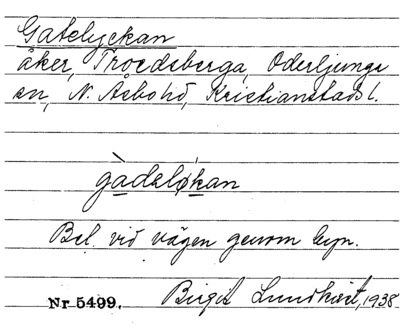 Gatelyckan
åker, Troedsberga, Oderljunga
sn, N. Åsbo hd, Kristianstads l.
gàdeløkan
Bel. vid vägen genom byn.
Nr 5499. Birgit Lundkvist, 1938